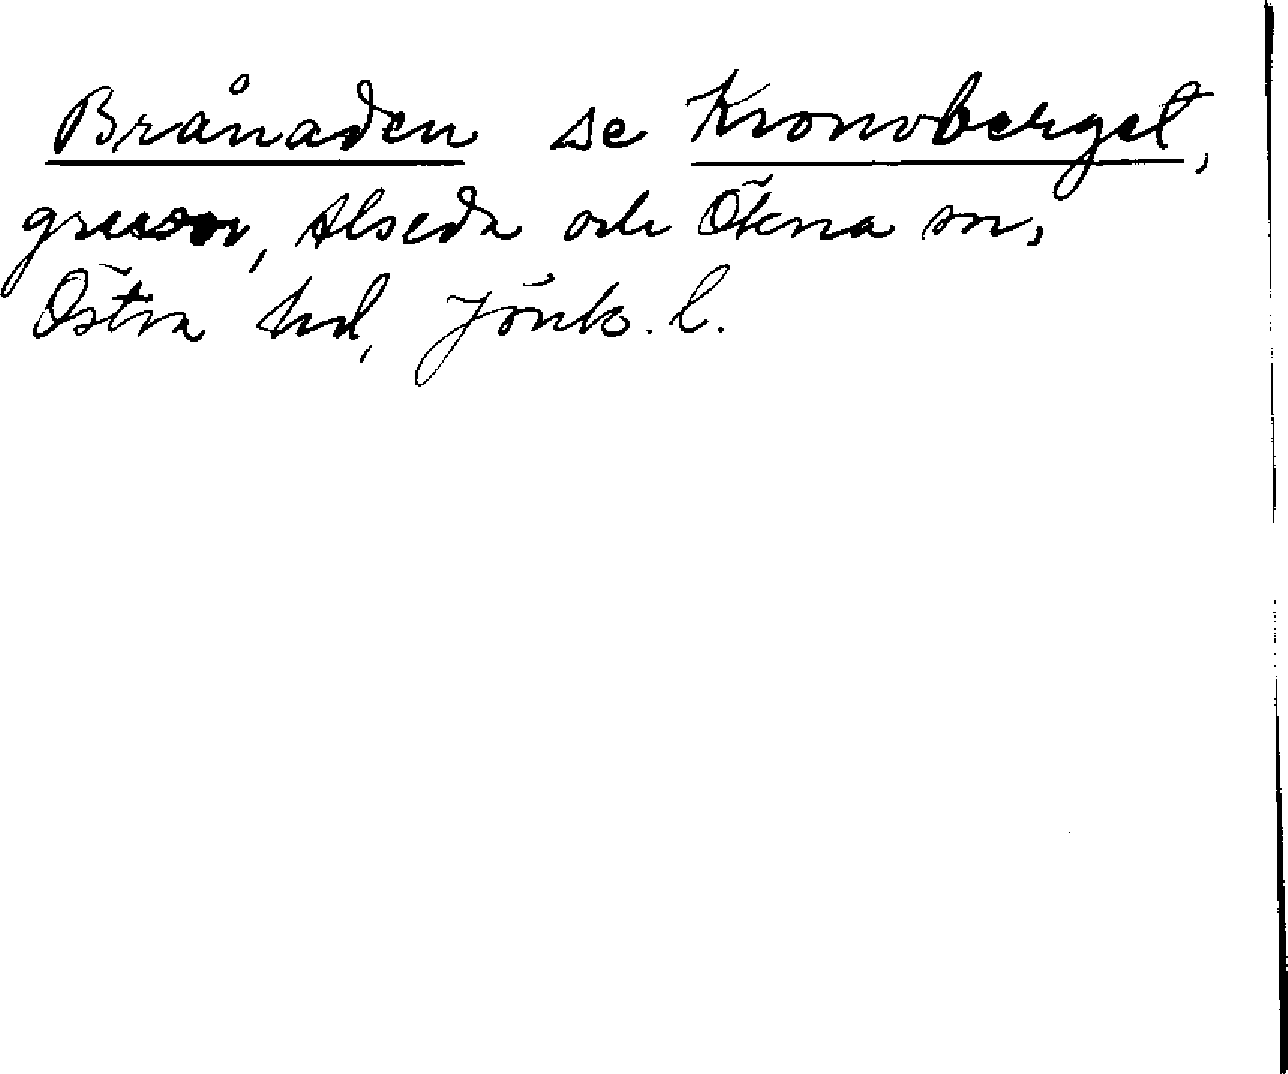 Brånaden se Kronoberget,
gruvor, Alseda och Ökna snr,
Östra hd, Jönk. l.